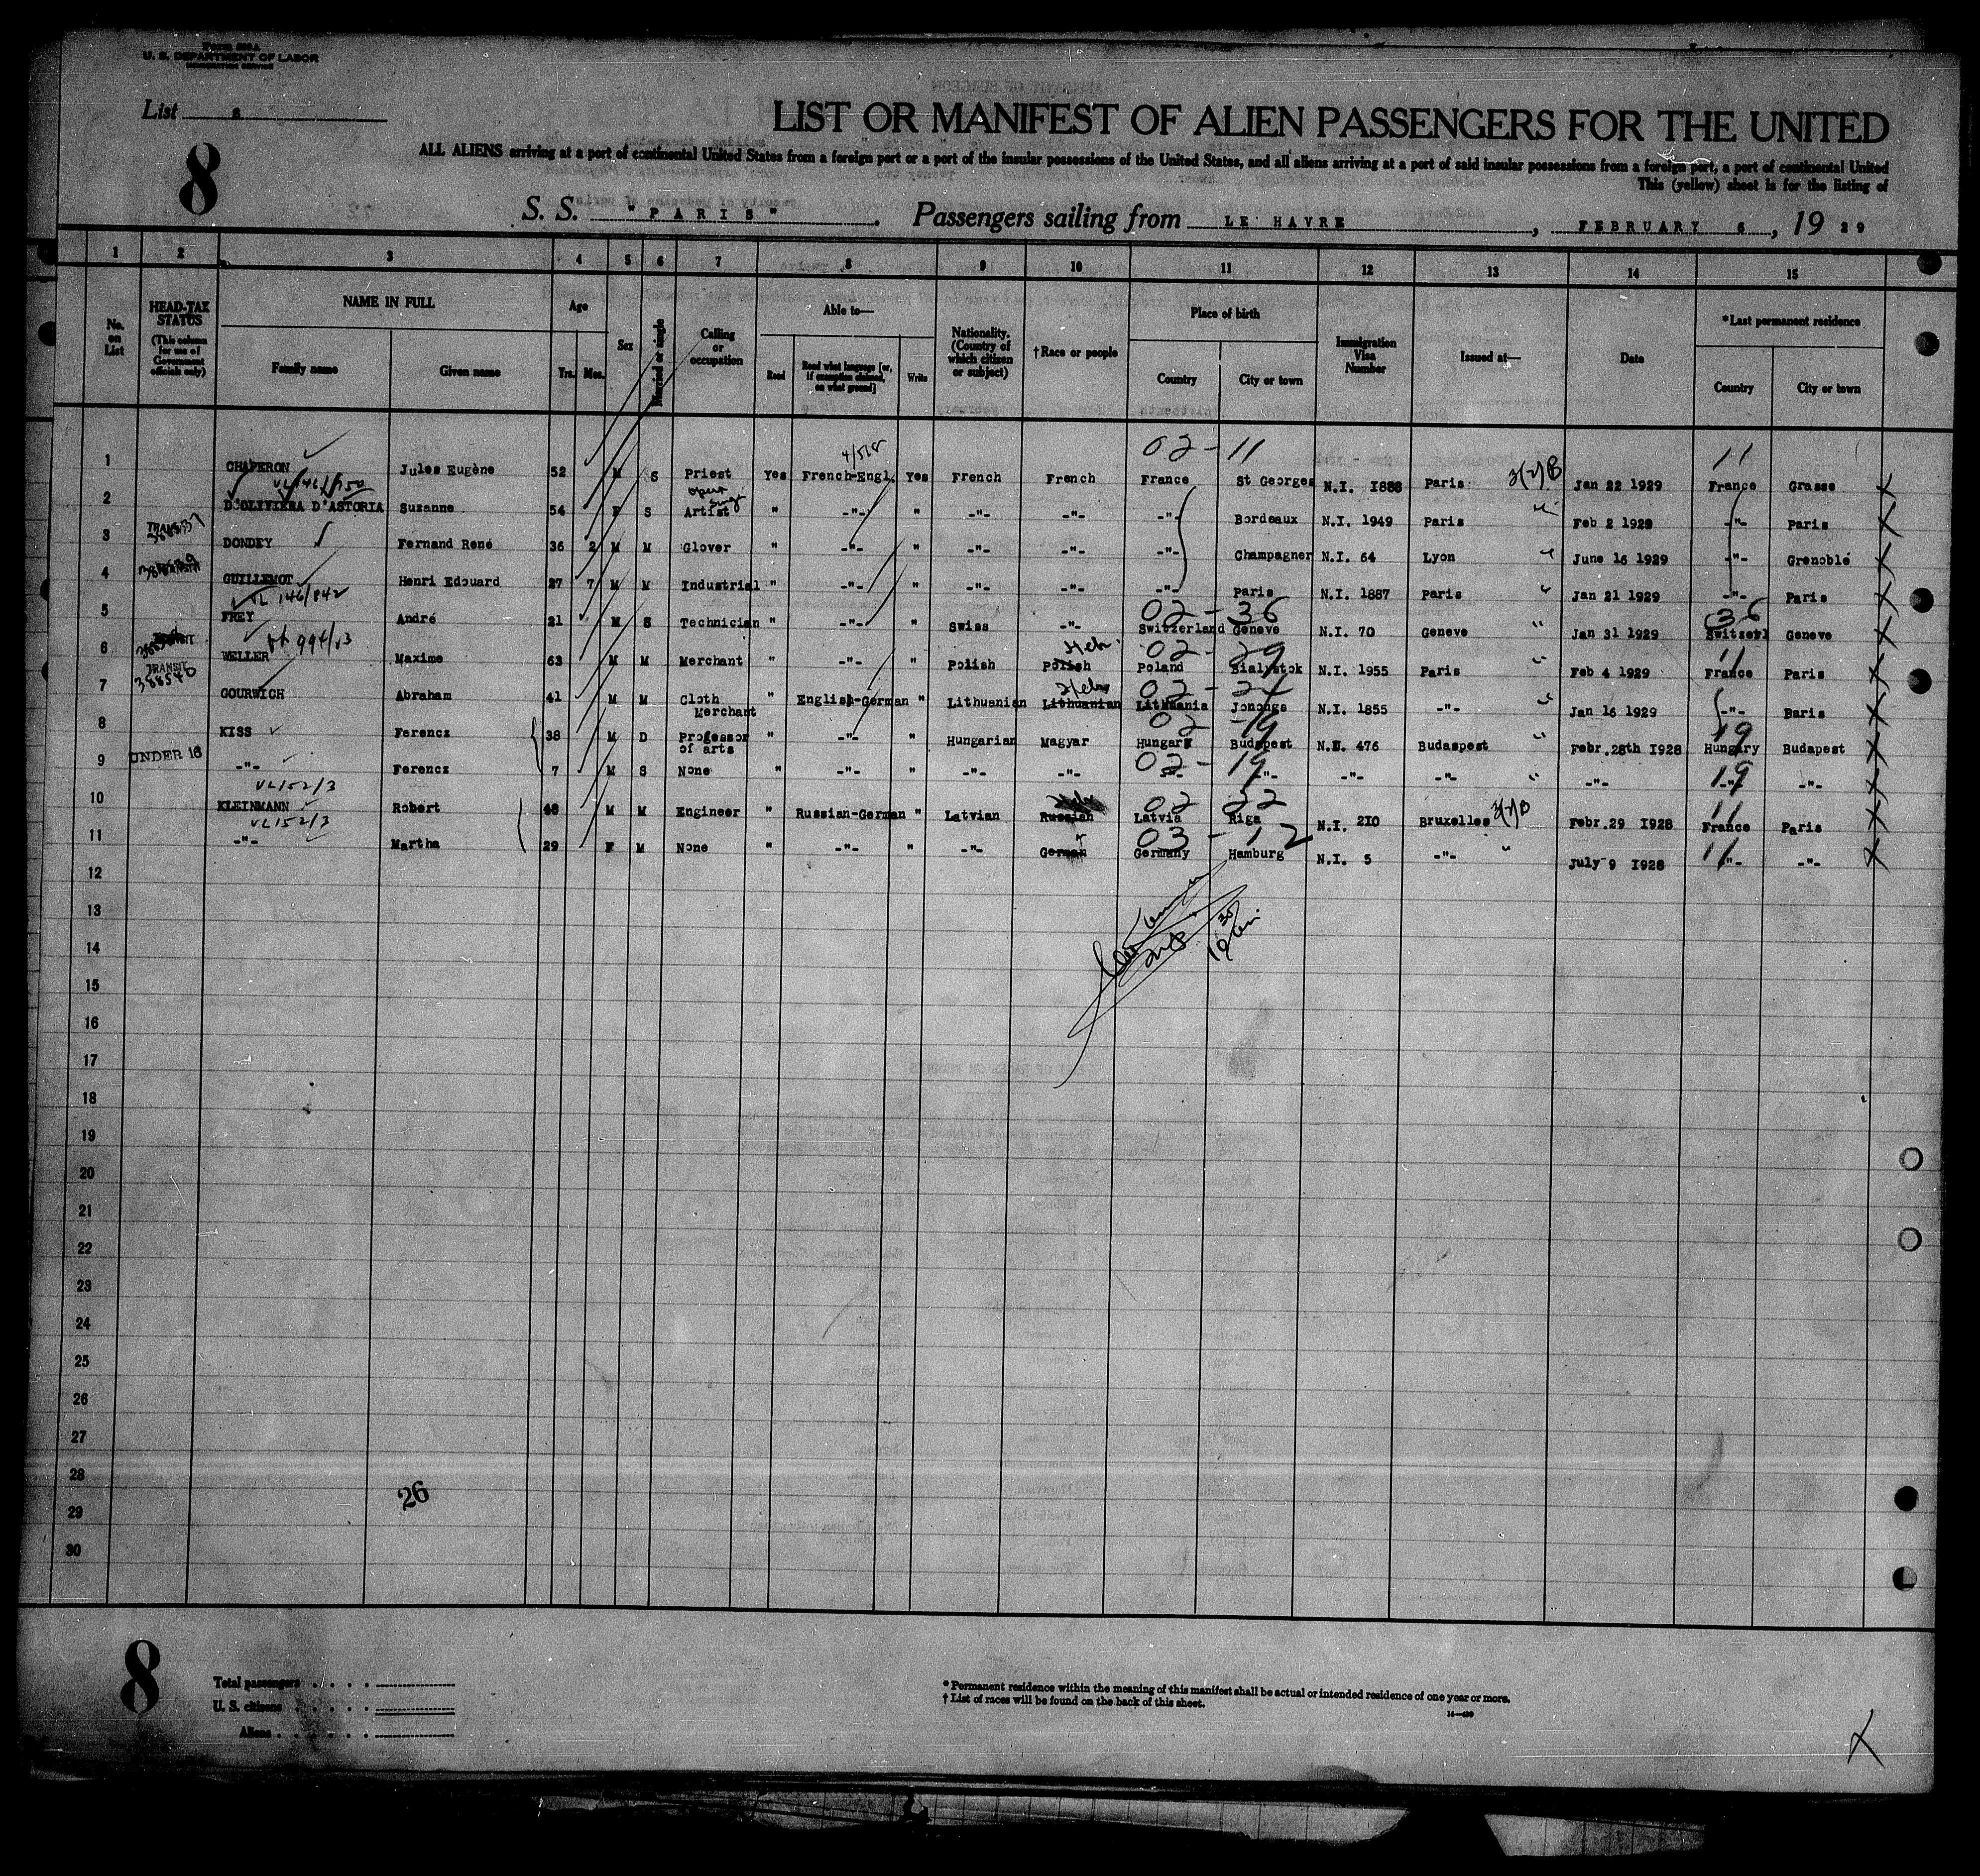 Form 500 A
U. S. DEPARTMENT OF LABOR
IMMIGRATION SERVICE
List 8
8
LIST OR MANIFEST OF ALIEN PASSENGERS FOR THE UNITED
ALL ALIENS arriving at a port of continental United States from a foreign port or a port of the insular possessions of the United States, and all aliens arriving at a port of said insular possessions from a foreign port, a port of continental United
This (yellow) sheet is for the listing of
S. S. "PARIS". Passengers sailing from LE HAVRE, FEBRUARY 6, 19 29
1 2 3 4 5 6 7 8 9 10 11 12 13 14 15
No. on List
HEAD-TAX STATUS (This column for use of Government officials only)
NAME IN FULL
Family name Given name
Age
Yrs. Mos.
Sex
Married or single
Calling or occupation
Able to—
Read Read what language [or, if exemption claimed, on what ground] Write
Nationality. (Country of which citizen or subject)
†Race or people
Place of birth
Country City or town
Immigration Visa Number
Issued at—
Date
*Last permanent residence
Country City or town
02-11 11
1 CHAPERON Jules Eugène 52 M S Priest Yes French-Engl. Yes French French France St Georges N.I. 1888 Paris 3(2)B Jan 22 1929 France Grasse
2 D'OLIVIERA D'ASTORIA Suzanne 54 F S Artist " -"- " -"- -"- -"- Bordeaux N.I. 1949 Paris " Feb 2 1929 -"- Paris
3 DONDEY Fernand René 36 2 M M Glover " -"- " -"- -"- -"- Champagner N.I. 64 Lyon " June 16 1929 -"- Grenoble
4 GUILLEMOT Henri Edouard 27 7 M M Industrial " -"- " -"- -"- -"- Paris N.I. 1887 Paris " Jan 21 1929 -"- Paris
VL 146/842 02-36 36
5 FREY André 21 M S Technician " -"- " Swiss -"- Switzerland Geneve N.I. 70 Geneve " Jan 31 1929 Switzerl Geneve
Heb. 02-29 11
6 WELLER Maxime 63 M M Merchant " -"- " Polish Polish Poland Bialystok N.I. 1955 Paris " Feb 4 1929 France Paris
TRANSIT 388540 Heb 02-24
7 GOURWICH Abraham 41 M M Cloth Merchant " English-German " Lithuanian Lithuanian Lithuania N.I. 1855 -"- " Jan 16 1929 -"- Baris
02-19 19
8 KISS Ferencz 38 M D Professor of arts " -"- " Hungarian Magyar Hungary Budapest N.I. 476 Budaspest " Febr.28th 1928 Hungary Budapest
02-19 19
9 UNDER 16 -"- Ferencz 7 M S None " -"- " -"- -"- -"- -"- -"- -"- " -"- -"- -"-
VL152/3 02 22 11
10 KLEINMANN Robert 48 M M Engineer " Russian-German " Latvian Russian Latvia Riga N.I. 210 Bruxelles 3(2)B Febr.29 1928 France Paris
VL152/3 03-12 11
11 -"- Martha 29 F M None " -"- " -"- German Germany Hamburg N.I. 5 -"- " July 9 1928 -"- -"-
12
13
14
15
16
17
18
19
20
21
22
23
24
25
26
27
28
26
29
30
8
Total passengers
U. S. citizens
Aliens
* Permanent residence within the meaning of this manifest shall be actual or intended residence of one year or more.
† List of races will be found on the back of this sheet.